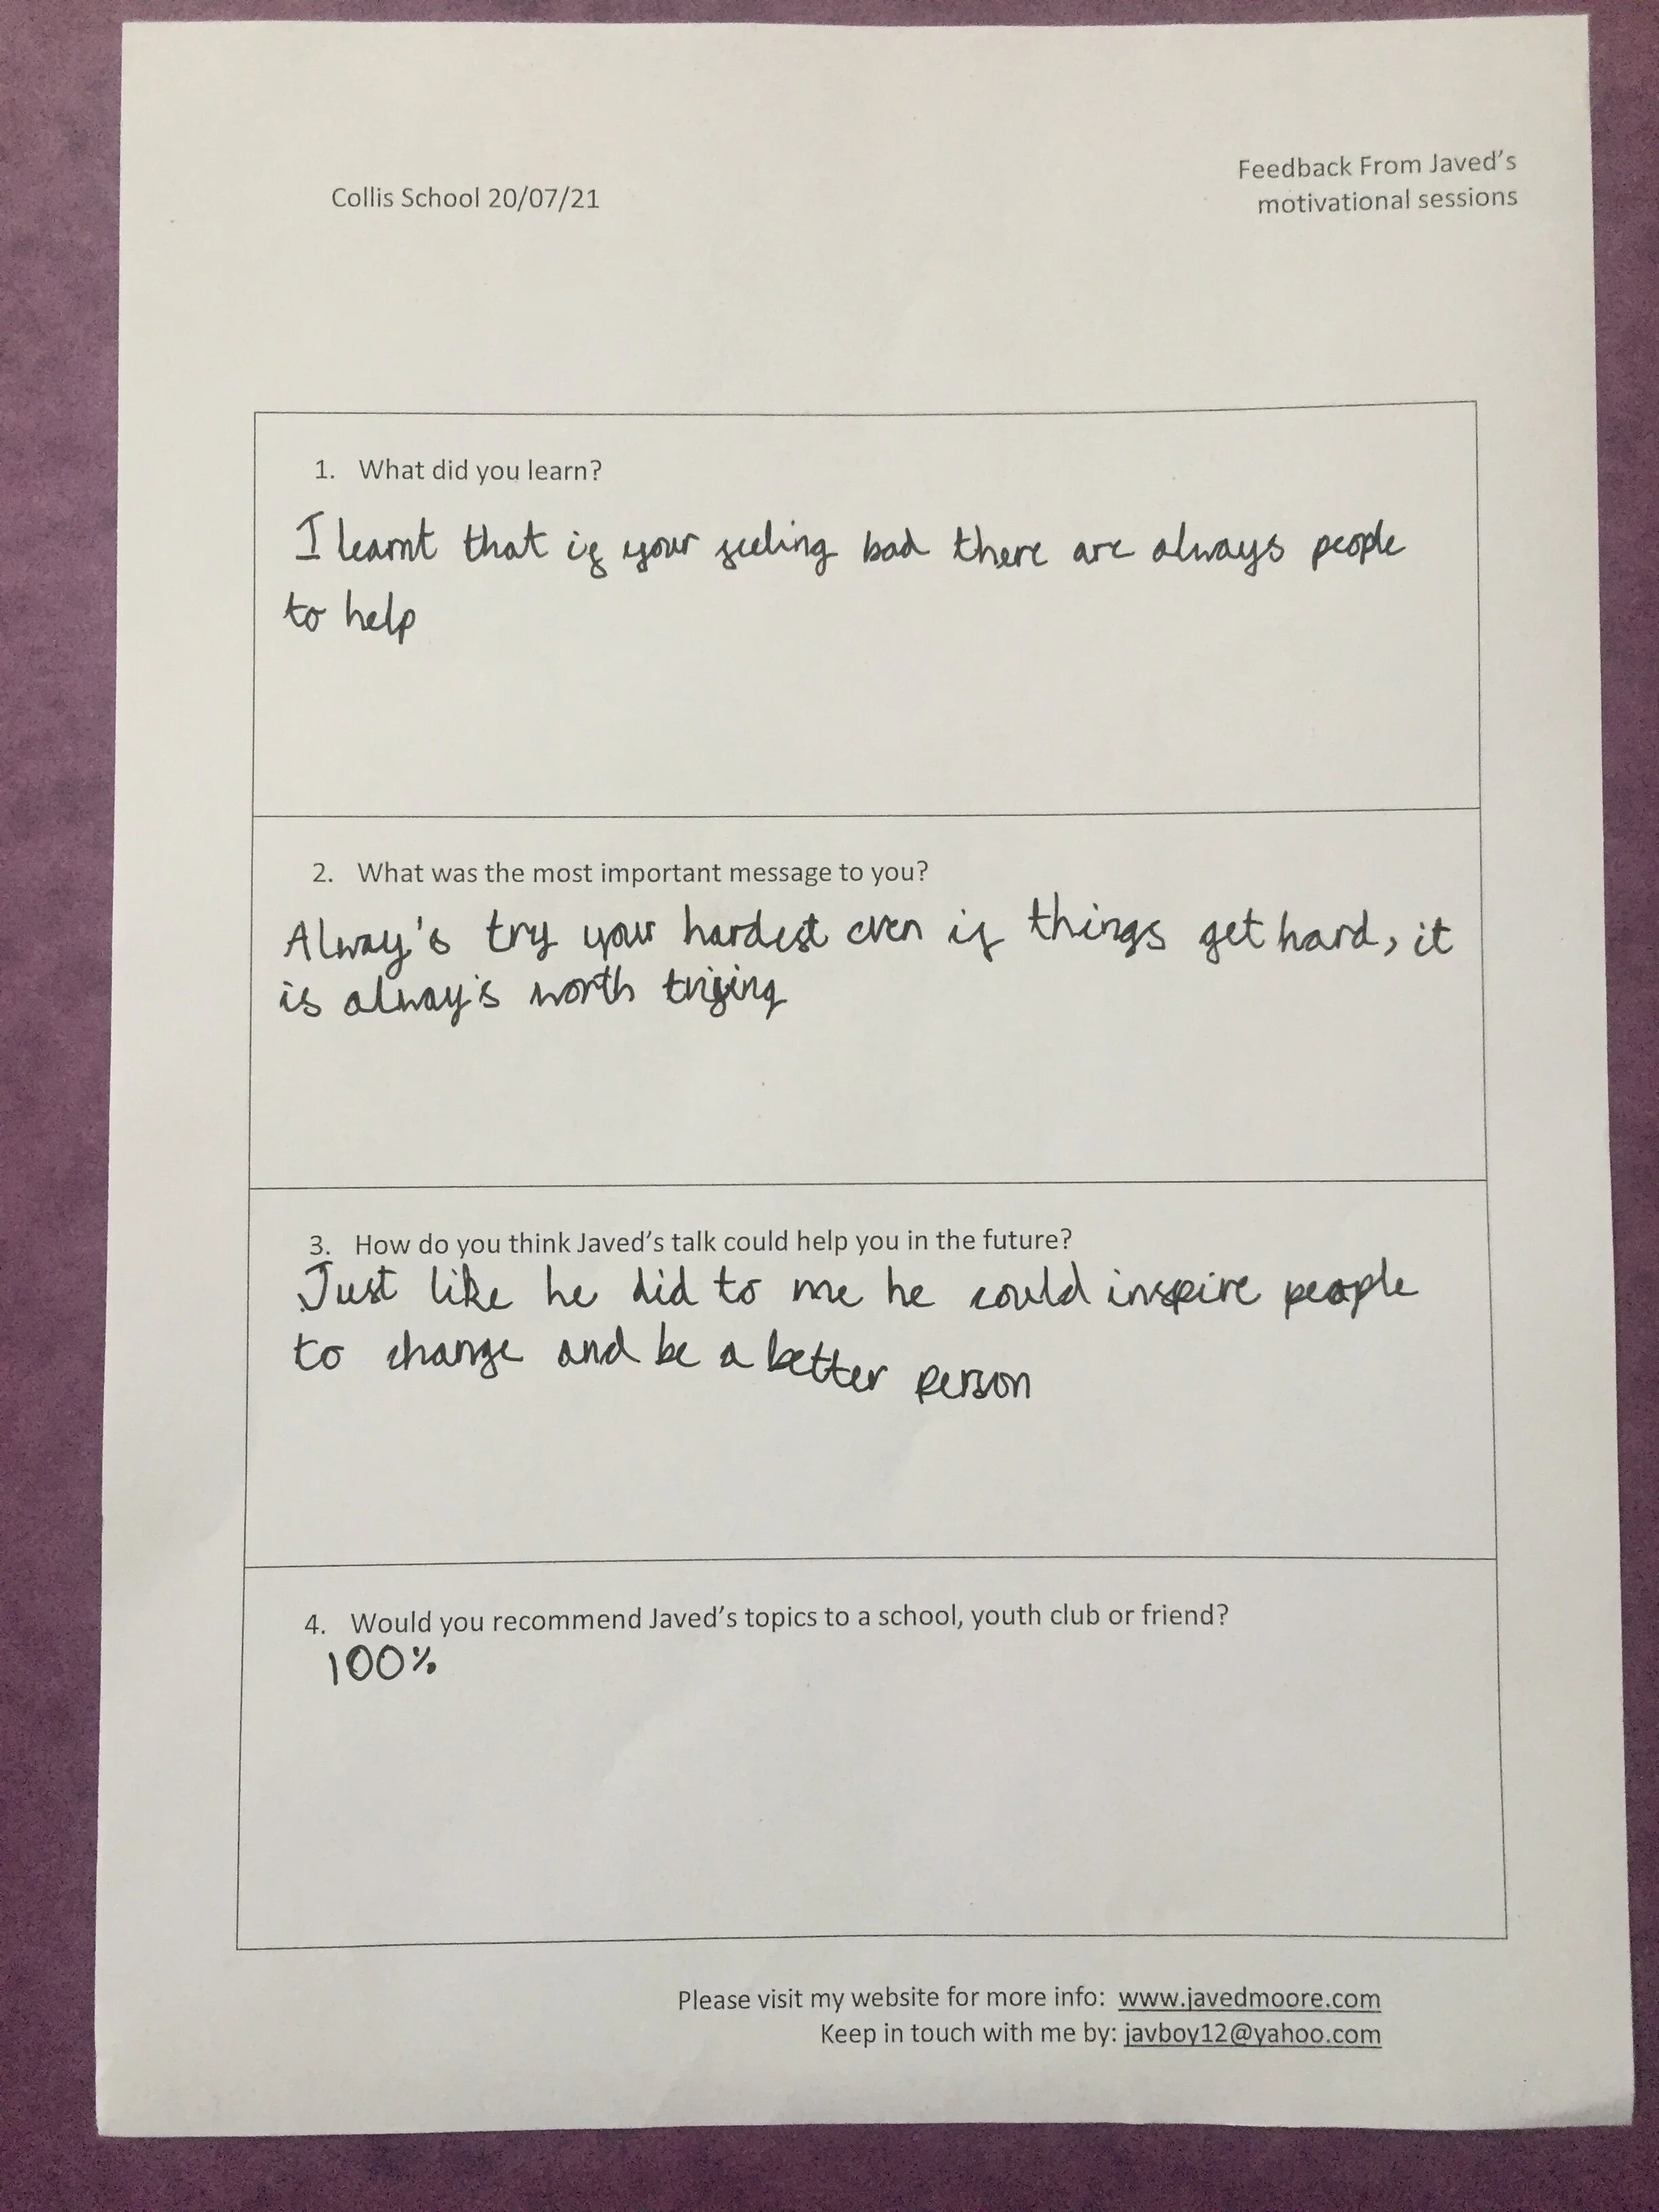 Collis School 20/07/21
Feedback From Javed's
motivational sessions
1. What did you learn?
I learnt that if your feeling bad there are always people
to help
2. What was the most important message to you?
Alway's try your hardest even if things get hard, it
is alway's worth
3. How do you think Javed's talk could help you in the future?
Just like he did to me he could inspire people
to change and be a better person
4. Would you recommend Javed's topics to a school, youth club or friend?
100%
Please visit my website for more info: www.javedmoore.com
Keep in touch with me by: javboy12@yahoo.com